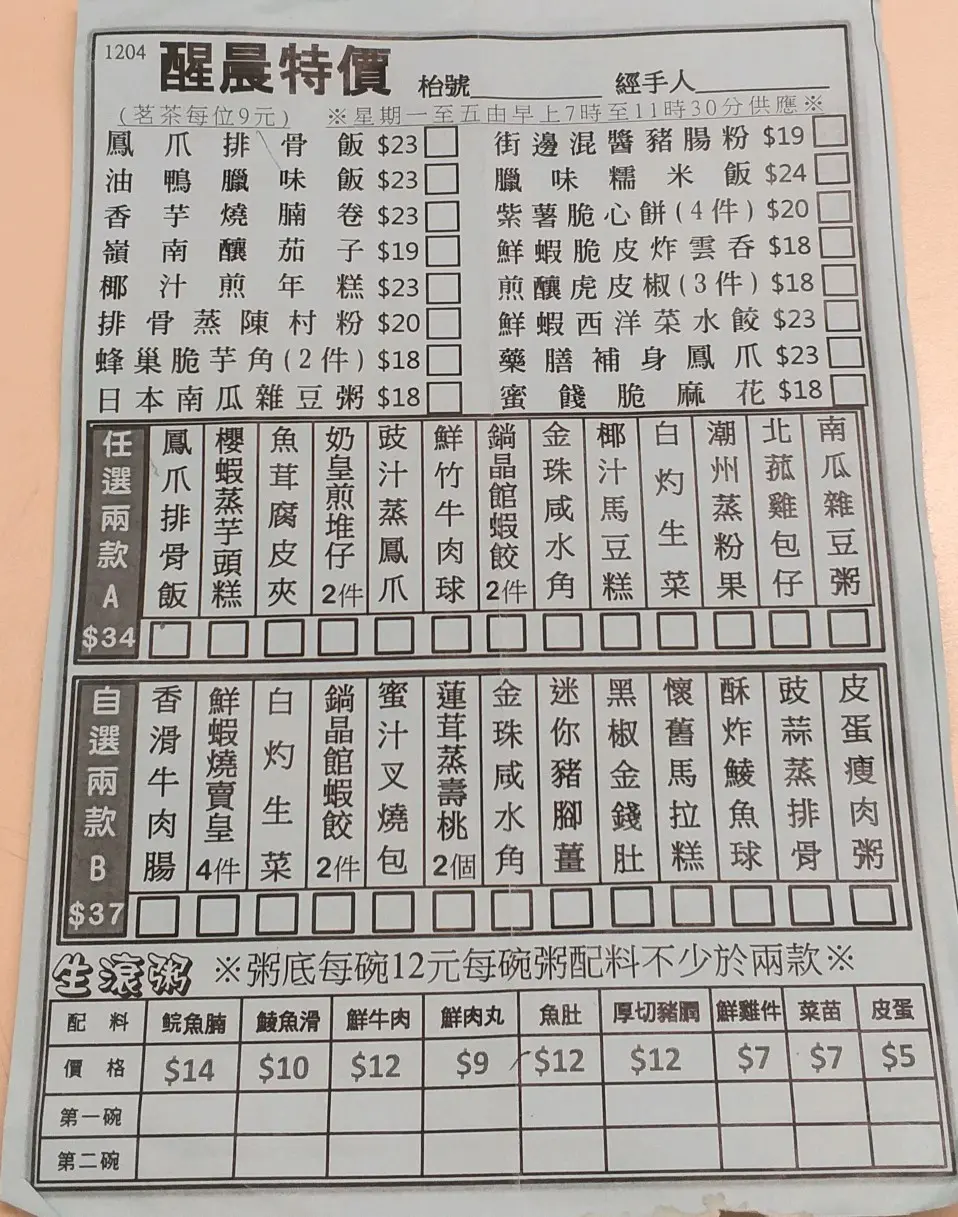 1204 醒晨特價 枱號 經手人
(茗茶每位9元) ※星期一至五由早上7時至11時30分供應※
鳳爪排骨飯 $23
油鴨臘味飯 $23
香芋燒腩卷 $23
嶺南釀茄子 $19
椰汁煎年糕 $23
排骨蒸陳村粉 $20
蜂巢脆芋角(2件) $18
日本南瓜雜豆粥 $18
街邊混醬豬腸粉 $19
臘味糯米飯 $24
紫薯脆心餅(4件) $20
鮮蝦脆皮炸雲吞 $18
煎釀虎皮椒(3件) $18
鮮蝦西洋菜水餃 $23
藥膳補身鳳爪 $23
蜜餞脆麻花 $18
任選兩款A $34
鳳爪排骨飯
櫻蝦蒸芋頭糕
魚茸腐皮夾
奶皇煎堆仔2件
豉汁蒸鳳爪
鮮竹牛肉球
鍋晶館蝦餃2件
金珠咸水角
椰汁馬豆糕
白灼生菜
潮州蒸粉果
北菰雞包仔
南瓜雜豆粥
自選兩款B $37
香滑牛肉腸
鮮蝦燒賣皇4件
白灼生菜
鍋晶館蝦餃2件
蜜汁叉燒包
蓮茸蒸壽桃2個
金珠咸水角
迷你豬腳薑
黑椒金錢肚
懷舊馬拉糕
酥炸鯪魚球
豉蒜蒸排骨
皮蛋瘦肉粥
生滾粥 ※粥底每碗12元每碗粥配料不少於兩款※
配料 鯇魚腩 鯪魚滑 鮮牛肉 鮮肉丸 魚肚 厚切豬膶 鮮雞件 菜苗 皮蛋
價格 $14 $10 $12 $9 $12 $12 $7 $7 $5
第一碗
第二碗